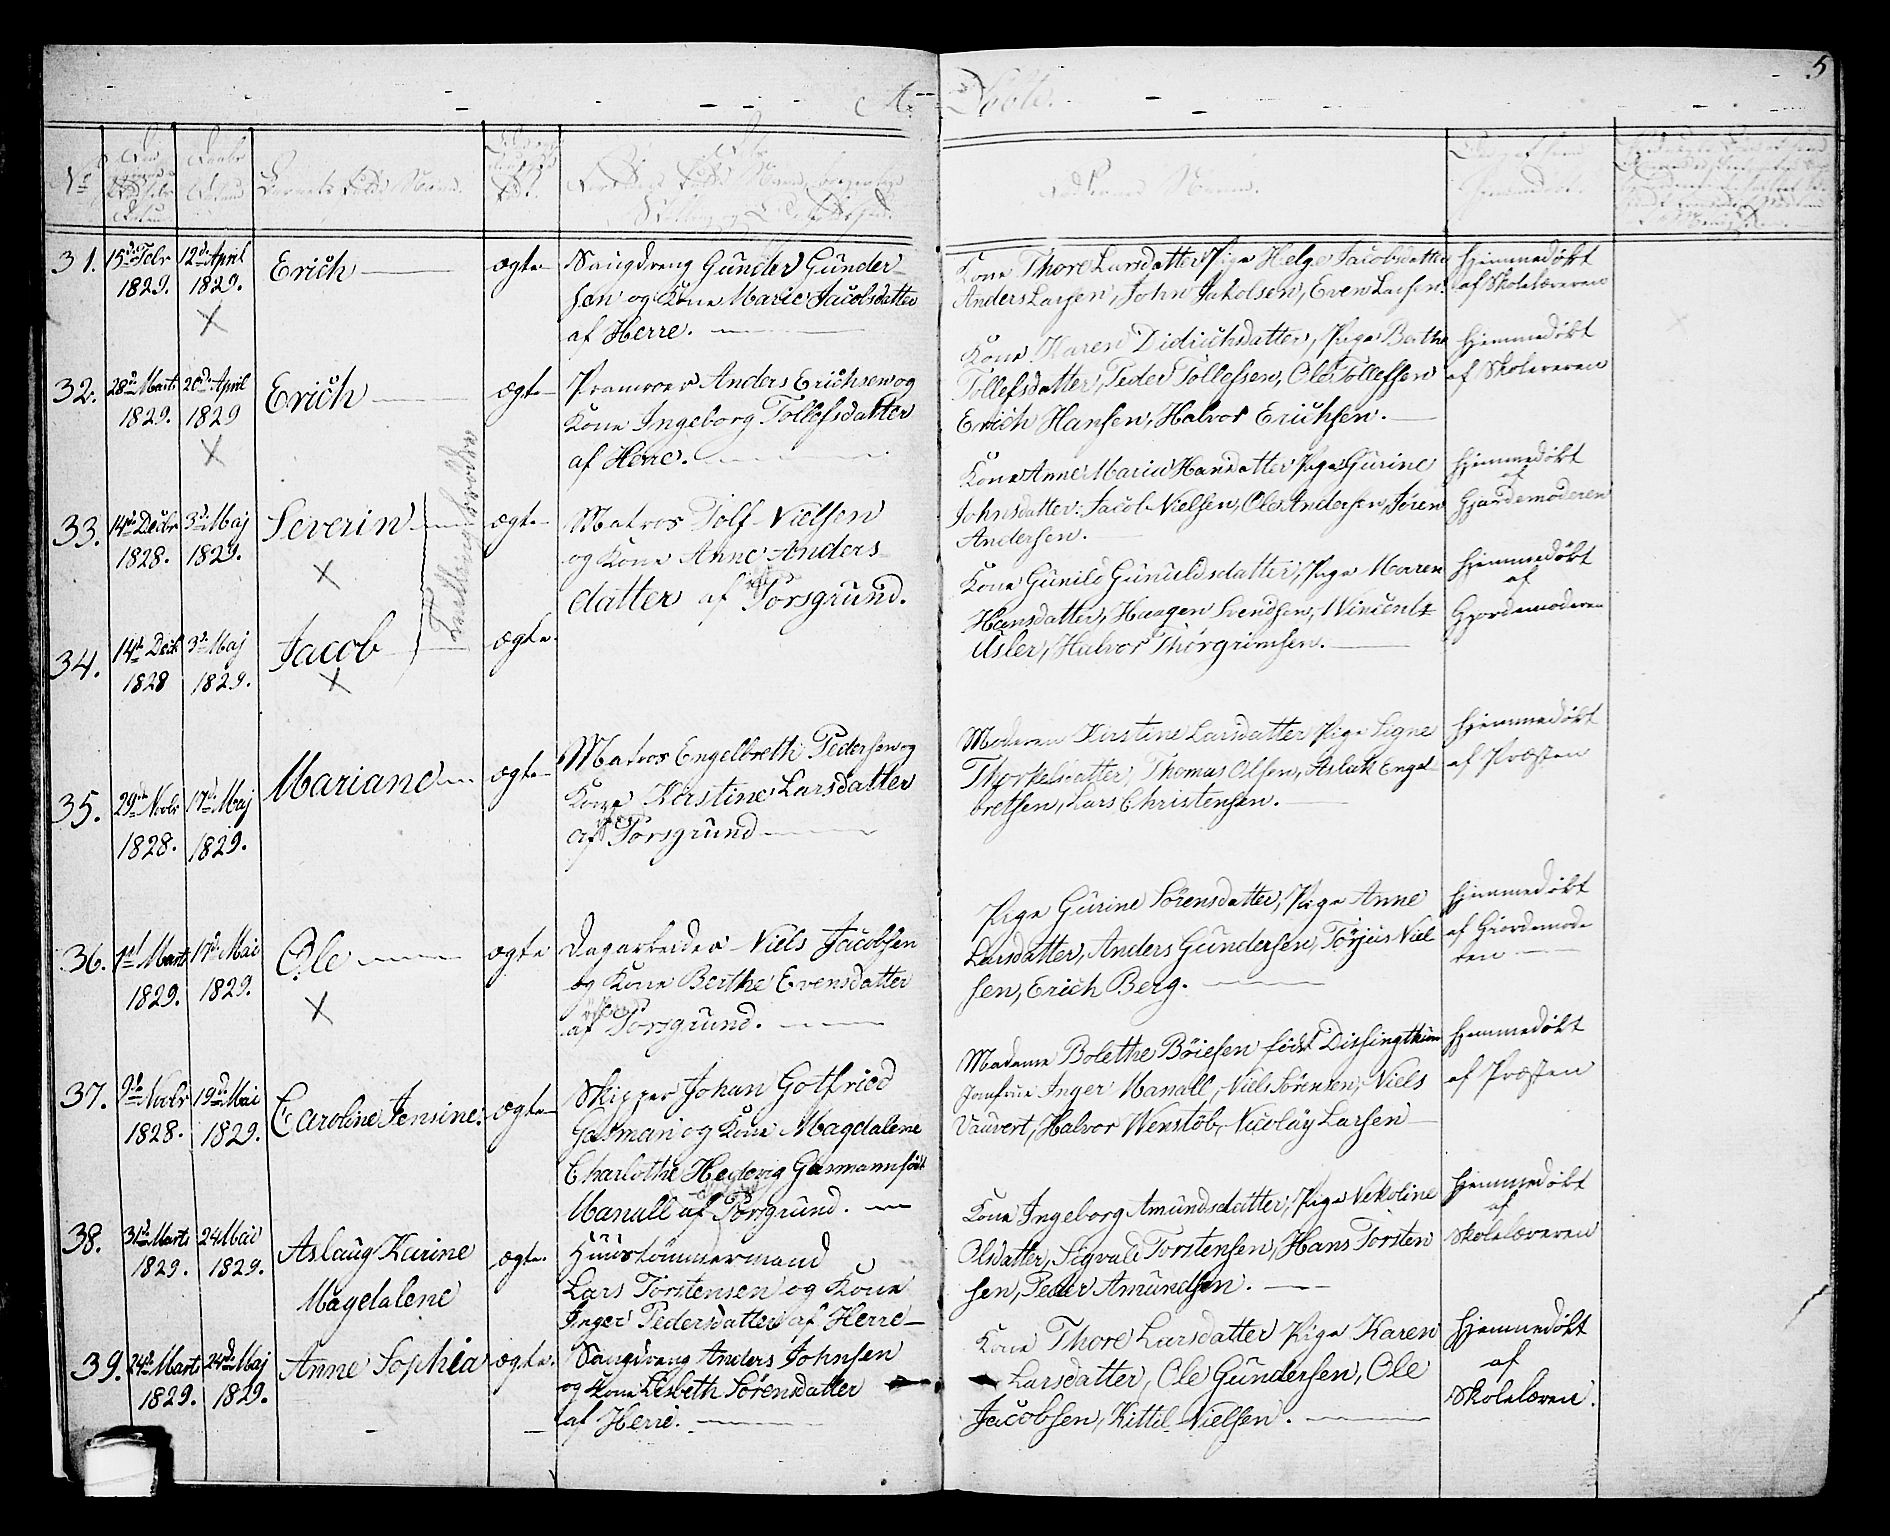 5
A. Døbte.
No
Barnets fulde Navn.
31. 15d Febr 1829. 12d April 1829. Erich ægte
Saugdreng Gunder Gunder-
sen og Kone Marie Jacobsdatter
af Herre.
Kone Thore Larsdatter, Pige Helge Jacobsdatter
Anders Larsen, John Jakobsen, Even Larsen.
Hjemmedøbt
af Skolelæreren
32. 28d Marts 1829. 20d April 1829 Erich ægte
Pramroer Anders Erichsen og
Kone Ingeborg Tollefsdatter
af Herre.
Kone Karen Didrichsdatter, Pige Berthe
Tollefsdatter, Peder Tollefsen, Ole Tollefsen
Erich Hansen, Halvor Erichsen.
Hjemmedøbt
af Skolereren
33. 14de Decbr 1828. 3de Maj 1829. Severin ægte
Tvillingbrødre
Matros Tolf Nielsen
og Kone Anne Anders-
datter af Porsgrund.
Kone Anne Maria Hansdatter, Pige Gurine
Johnsdatter, Jacob Nielsen, Ole Andersen, Sören
Andersen.
Hjemmedøbt
af
Gjordemoderen
34. 14de Decb 1828 3de Maj 1829. Jacob ægte.
Kone Gunild Gunuldsdatter, Pige Maren
Hansdatter, Haagen Svendsen, Wincentz
Usler, Halvor Thorgrimsen.
Hjemmedøbt
af
Gjordemoderen
35. 29de Novbr 1828. 17de Maj 1829. Mariane ægte
Matros Engelbreth Pedersen og
Kone Kirstine Larsdatter
af Porsgrund
Moderen Kirstine Larsdatter, Pige Signe
Thorkelsdatter, Thomas Olsen, Aslak Engel-
bretsen, Lars Christensen.
Hjemmedøbt
af Præsten
36. 1st Marts 1829. 17de Mai 1829. Ole ægte
Dagarbeider Niels Jacobsen
og Kone Berthe Evensdatter
af Porsgrund.
Pige Gurine Sörensdatter, Pige Anne
Larsdatter, Anders Gundersen, Törjus Niel
sen, Erich Berg.
Hjemmedøbt
af Giordemode
ren
37. 9de Novbr 1828. 19de Mai 1829. Caroline Jensine. ægte
Skipper Johan Gotfried
Gasman og Kone Magdalene
Charlothe Hedevig Gasmann född
Manall af Porsgrund.
Madame Bolethe Böiesen född Dissingthun
Jomfrue Inger Manall, Niels Sörensen, Niels
Vauvert, Halvor Wenstöb, Nicolay Larsen
Hjemmedøbt
af Præsten
38. 31d Marts 1829. 24 Mai 1829. Aslaug Karine
Magdalene ægte.
Huustömmermand
Lars Torstensen og Kone
Inger Pedersdatter af Herre
Kone Ingeborg Amundsdatter, Pige Nekoline
Olsdatter, Sigvald Torstensen, Hans Torsten
sen, Peder Amundsen.
Hjemmedøbt
af
Skolelæreren
39. 24de Marts 1829. 24de Maj 1829. Anne Sophia ægte.
Saugdreng Anders Johnsen
og Kone Lisbeth Sörensdatter
af Herre.
Kone Thore Larsdatter, Pige Karen
Larsdatter, Ole Gundersen, Ole
Jacobsen, Kittil Nielsen.
Hjemmedøbt
af
Skolelæren.